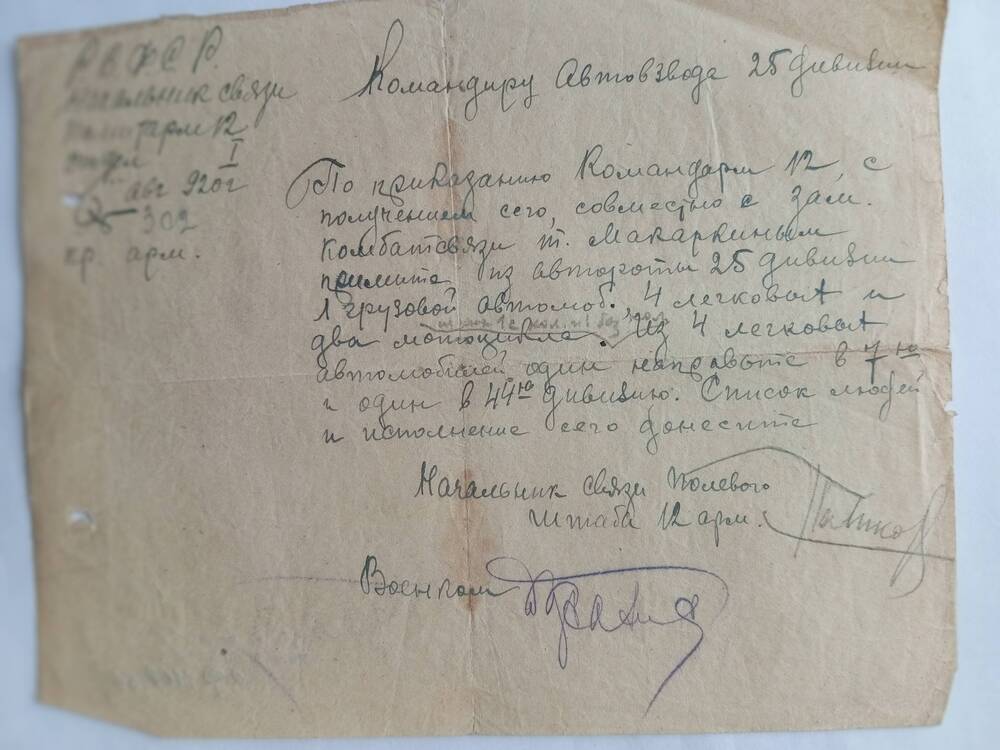 Р С Ф С Р.
Начальник связи
штарм 12
отдел I
авг 920 г
302
кр. арм.
Командиру Автовзвода 25 дивизии
По приказанию Командарм 12, с
получением сего, совместно с Зам.
Комбатсвязи т. Макаркиным
примите из автороты 25 дивизии
1 грузовой автомоб., 4 легковых и
два мотоцикла. Из 4 легковых
1 с кол. и 1 без кол.
автомобилей один направьте в 7ю
и один в 44ю дивизию. Список людей
и исполнение сего донесите
Начальник связи Полевого
Штаба 12 арм.
Военком